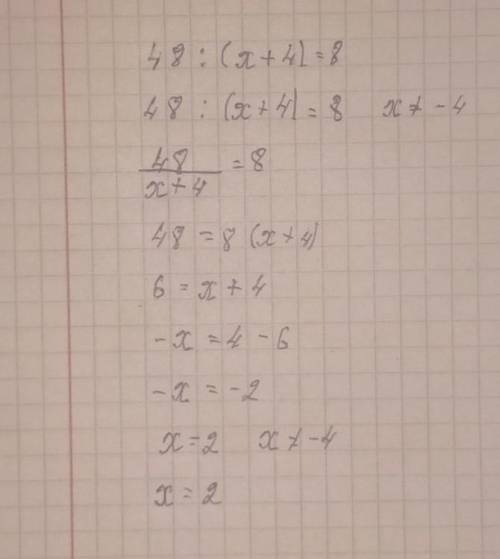 48 : (x+4) = 8
48 : (x+4) = 8 x ≠ -4
48/(x+4) = 8
48 = 8 (x+4)
6 = x + 4
-x = 4 - 6
-x = -2
x = 2 x ≠ -4
x = 2